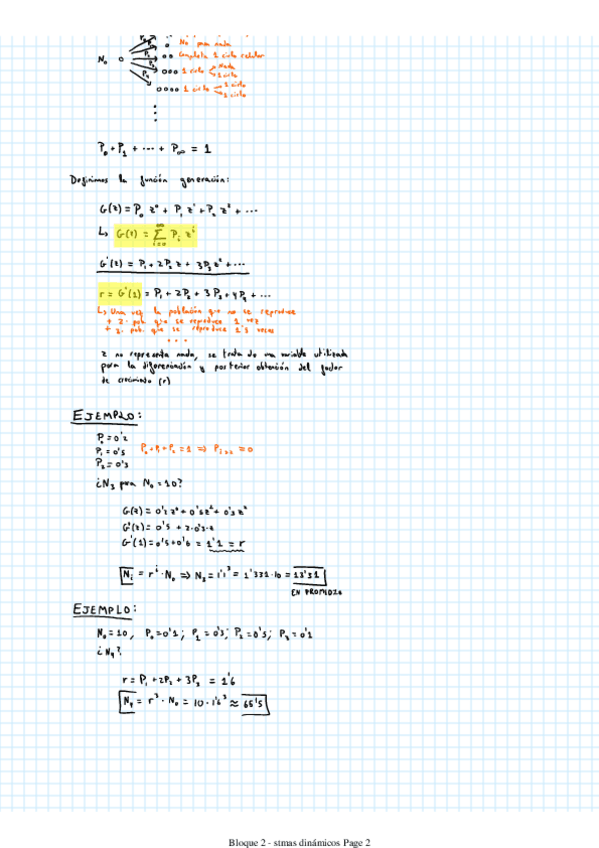 No pasa nada
N₀ o → o o Completa 1 ciclo celular
P₂
P₃ o o o 1 ciclo Nada
1 ciclo
o o o o 1 ciclo 1 ciclo
1 ciclo
P₀ + P₁ + ... + P∞ = 1
Definimos la función generación:
G(z) = P₀ z⁰ + P₁ z¹ + P₂ z² + ...
↳ G(z) = Σ Pᵢ zⁱ
i=0
G'(z) = P₁ + 2P₂ z + 3P₃ z² + ...
r = G'(1) = P₁ + 2P₂ + 3P₃ + 4P₄ + ...
↳ Una vez la población que no se reproduce
+ 2· pob. que se reproduce 1 vez
+ 3· pob. que se reproduce 1'5 veces
...
z no representa nada, se trata de una variable utilizada
para la diferenciación y posterior obtención del factor
de crecimiento (r)
EJEMPLO:
P₀ = 0'2
P₁ = 0's P₀ + P₁ + P₂ = 1 ⇒ Pᵢ>₂ = 0
P₂ = 0'3
¿N₃ para N₀ = 10?
G(z) = 0'2 z⁰ + 0's z¹ + 0'3 z²
G'(z) = 0's + 2·0'3·z
G'(1) = 0's + 0'6 = 1'1 = r
Nᵢ = rⁱ · N₀ ⇒ N₃ = 1'1³ = 1'331·10 = 13'31
EN PROMEDIO
EJEMPLO:
N₀ = 10, P₀ = 0'1; P₁ = 0'3; P₂ = 0's; P₃ = 0'1
¿N₄?
r = P₁ + 2P₂ + 3P₃ = 1'6
N₄ = r³ · N₀ = 10 · 1'6³ ≈ 65's
Bloque 2 - stmas dinámicos Page 2